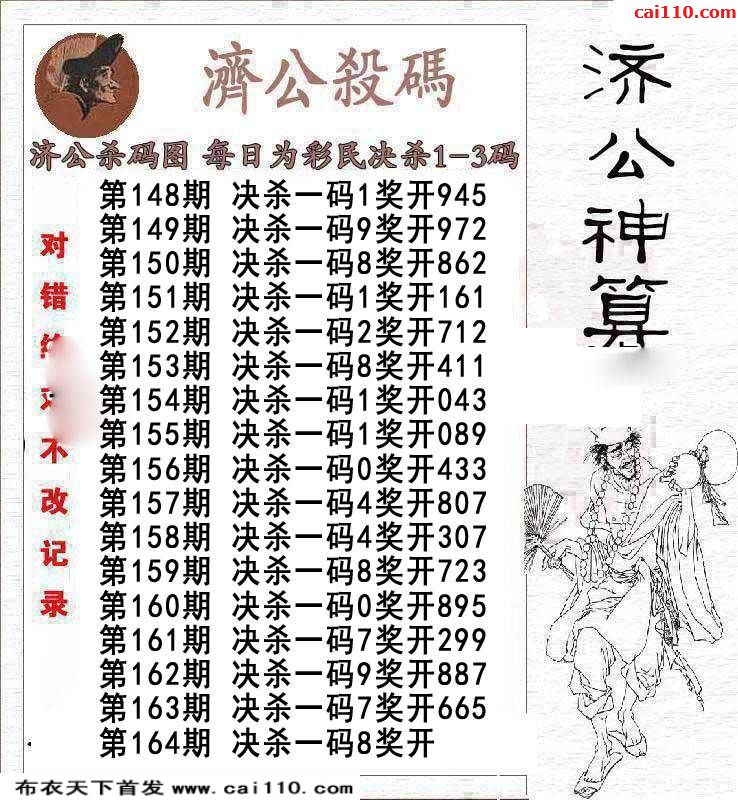 cai110.com
濟公殺碼
济公杀码图 每日为彩民决杀1-3码
第148期 决杀一码1奖开945
第149期 决杀一码9奖开972
第150期 决杀一码8奖开862
第151期 决杀一码1奖开161
第152期 决杀一码2奖开712
第153期 决杀一码8奖开411
第154期 决杀一码1奖开043
第155期 决杀一码1奖开089
第156期 决杀一码0奖开433
第157期 决杀一码4奖开807
第158期 决杀一码4奖开307
第159期 决杀一码8奖开723
第160期 决杀一码0奖开895
第161期 决杀一码7奖开299
第162期 决杀一码9奖开887
第163期 决杀一码7奖开665
第164期 决杀一码8奖开
对错不改记录
济公神算
布衣天下首发 www.cai110.com